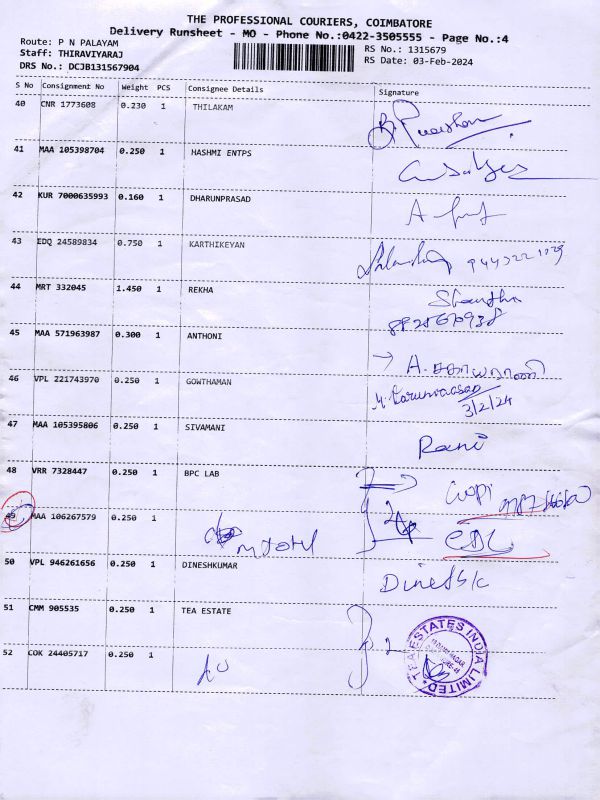 THE PROFESSIONAL COURIERS, COIMBATORE
Delivery Runsheet - MO - Phone No.:0422-3505555 - Page No.:4
Route: P N PALAYAM
RS No.: 1315679
Staff: THIRAVIYARAJ
RS Date: 03-Feb-2024
DRS No.: DCJB131567904
S No Consignment No Weight PCS Consignee Details Signature
40 CNR 1773608 0.230 1 THILAKAM
41 MAA 105398704 0.250 1 HASHMI ENTPS
42 KUR 7000635993 0.160 1 DHARUNPRASAD
43 EDQ 24589834 0.750 1 KARTHIKEYAN
44 MRT 332045 1.450 1 REKHA
45 MAA 571963987 0.300 1 ANTHONI
46 VPL 221743970 0.250 1 GOWTHAMAN
3/2/24
47 MAA 105395806 0.250 1 SIVAMANI
Rani
48 VRR 7328447 0.250 1 BPC LAB
Gopi
49 MAA 106267579 0.250 1
50 VPL 946261656 0.250 1 DINESHKUMAR
51 CMM 905535 0.250 1 TEA ESTATE
52 COK 24405717 0.250 1
TEA ESTATES INDIA LIMITED